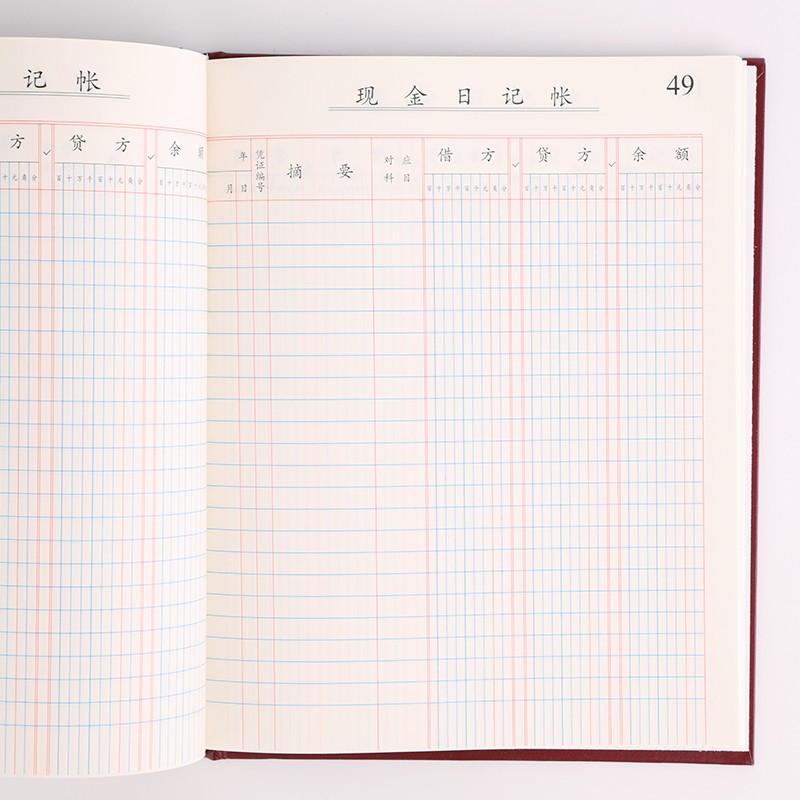 记 帐
方 ✓ 贷 方 ✓ 余 额
十元角分 百十万千百十元角分
现 金 日 记 帐
49
年 凭证编号 摘 要 对应科目 借 方 ✓ 贷 方 ✓ 余 额
月 日 百十万千百十元角分 百十万千百十元角分 百十万千百十元角分